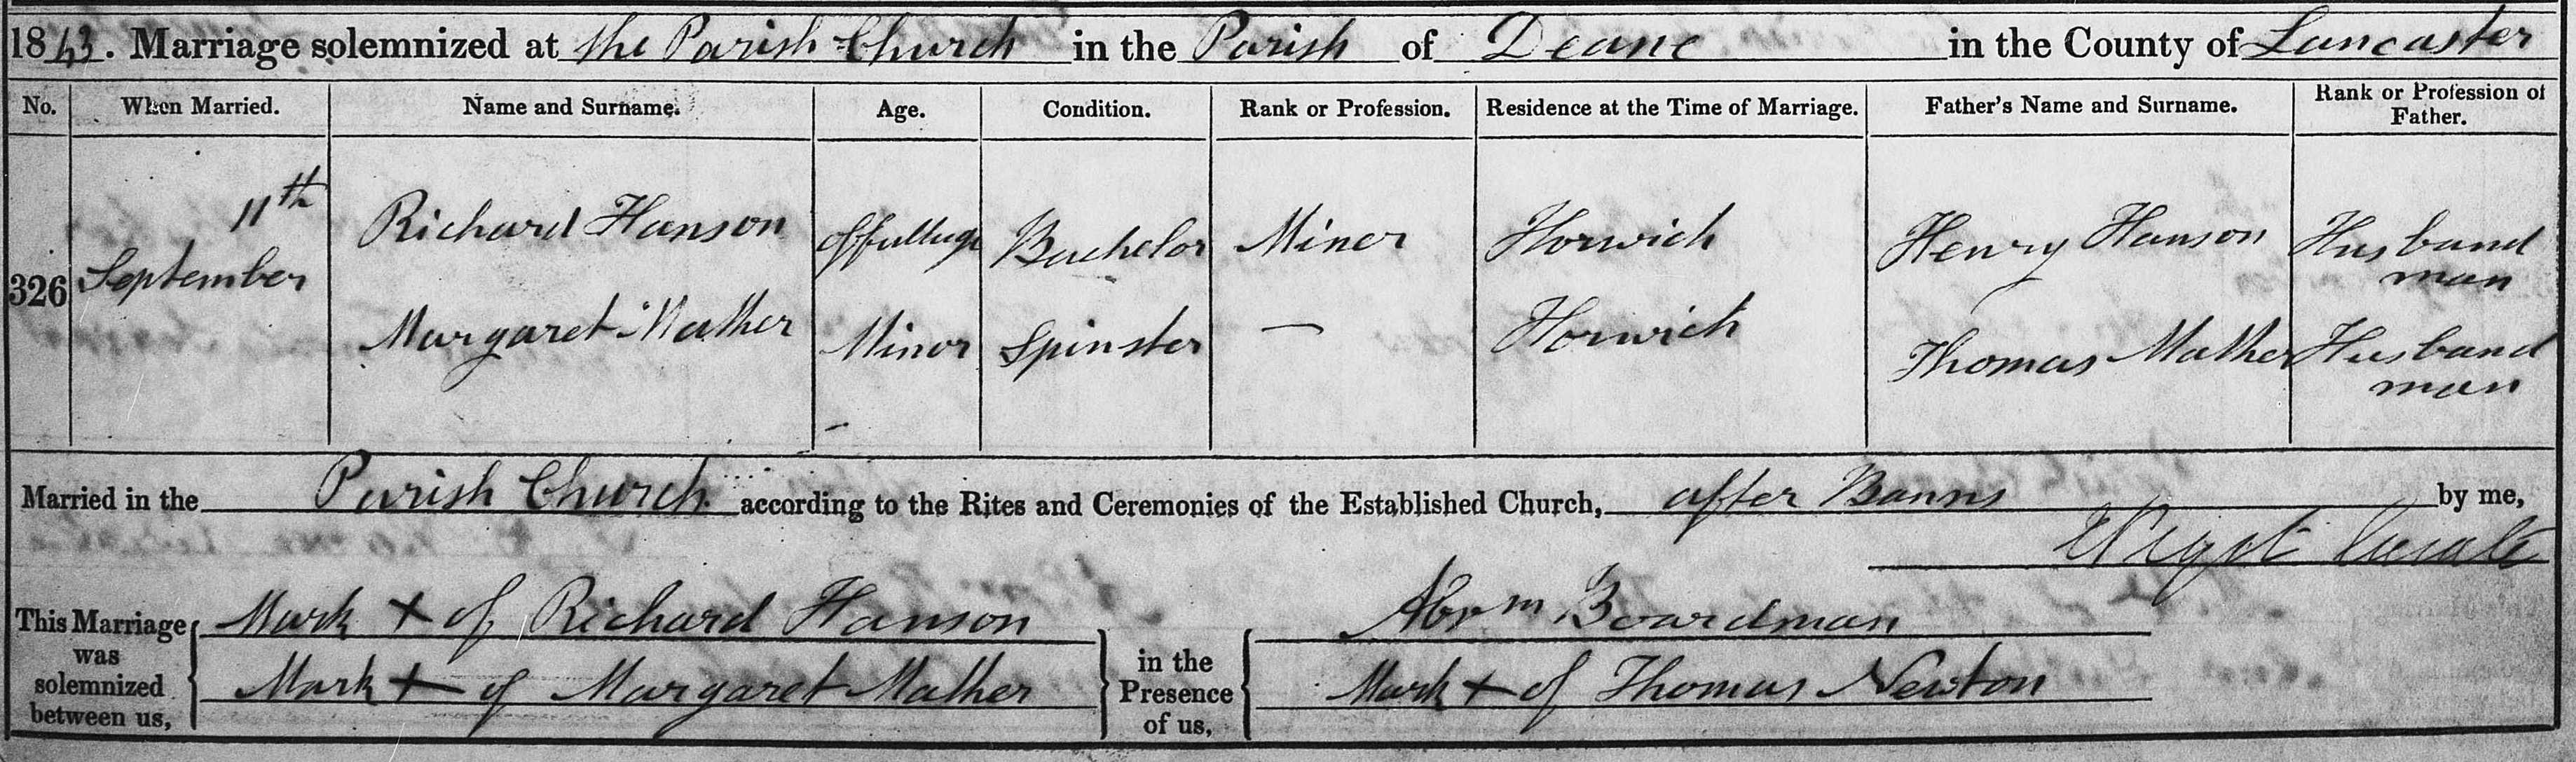 1843. Marriage solemnized at the Parish Church in the Parish of Deane in the County of Lancaster
No. When Married. Name and Surname. Age. Condition. Rank or Profession. Residence at the Time of Marriage. Father's Name and Surname. Rank or Profession of Father.
326 11th September Richard Hanson of full age Bachelor Miner Horwich Henry Hanson Husband man
Margaret Mather Minor Spinster — Horwich Thomas Mather Husband man
Married in the Parish Church according to the Rites and Ceremonies of the Established Church, after Banns by me,
Curate
This Marriage was solemnized between us, Mark + of Richard Hanson
Mark + of Margaret Mather
in the Presence of us, Abrm Boardman
Mark + of Thomas Newton